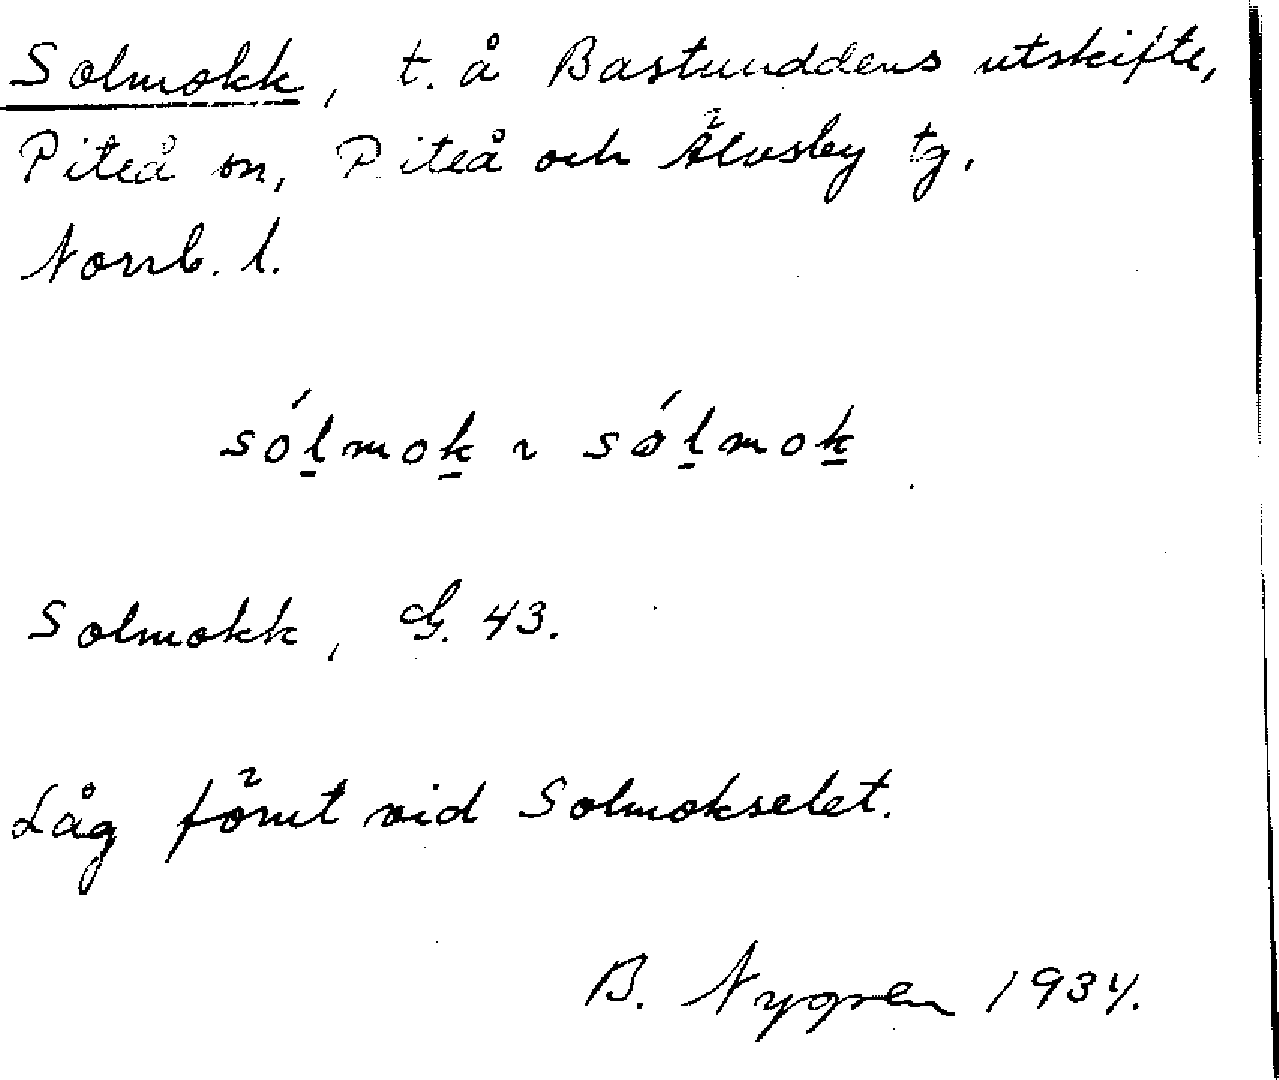 Solmokk, t. å Bastuuddens utskifte,
Piteå sn, Piteå och Älvsby tg.
Norrb. l.
sólmok ~ sólmok
Solmokk, G. 43.
Låg förut vid Solmokselet.
B. Nygren 1934.